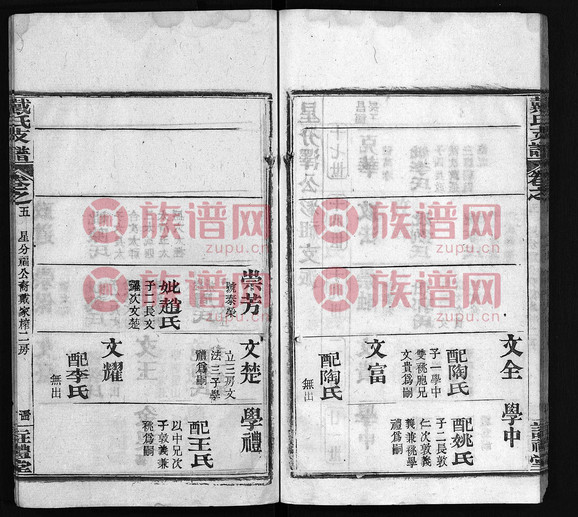 文全
學中
配陶氏
子一學中
雙祧胞兄
文貴爲嗣
配姚氏
子二長敦
仁次敦義
義兼祧學
禮爲嗣
文富
配陶氏
無出
崇芳
文楚
學禮
號泰榮
立三房文
法三子學
禮爲嗣
妣趙氏
子二長文
耀次文楚
配王氏
以中兄次
子敦義兼
祧爲嗣
文耀
配李氏
無出
戴氏支譜
卷之
五
星分祠公裔戴家榨二房
譜
注禮堂
族谱网
zupu.cn
族谱网
zupu.cn
族谱网
zupu.cn
族谱网
zupu.cn